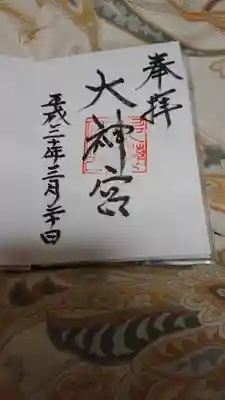 奉拝
大神宮
平成二十年三月二十日